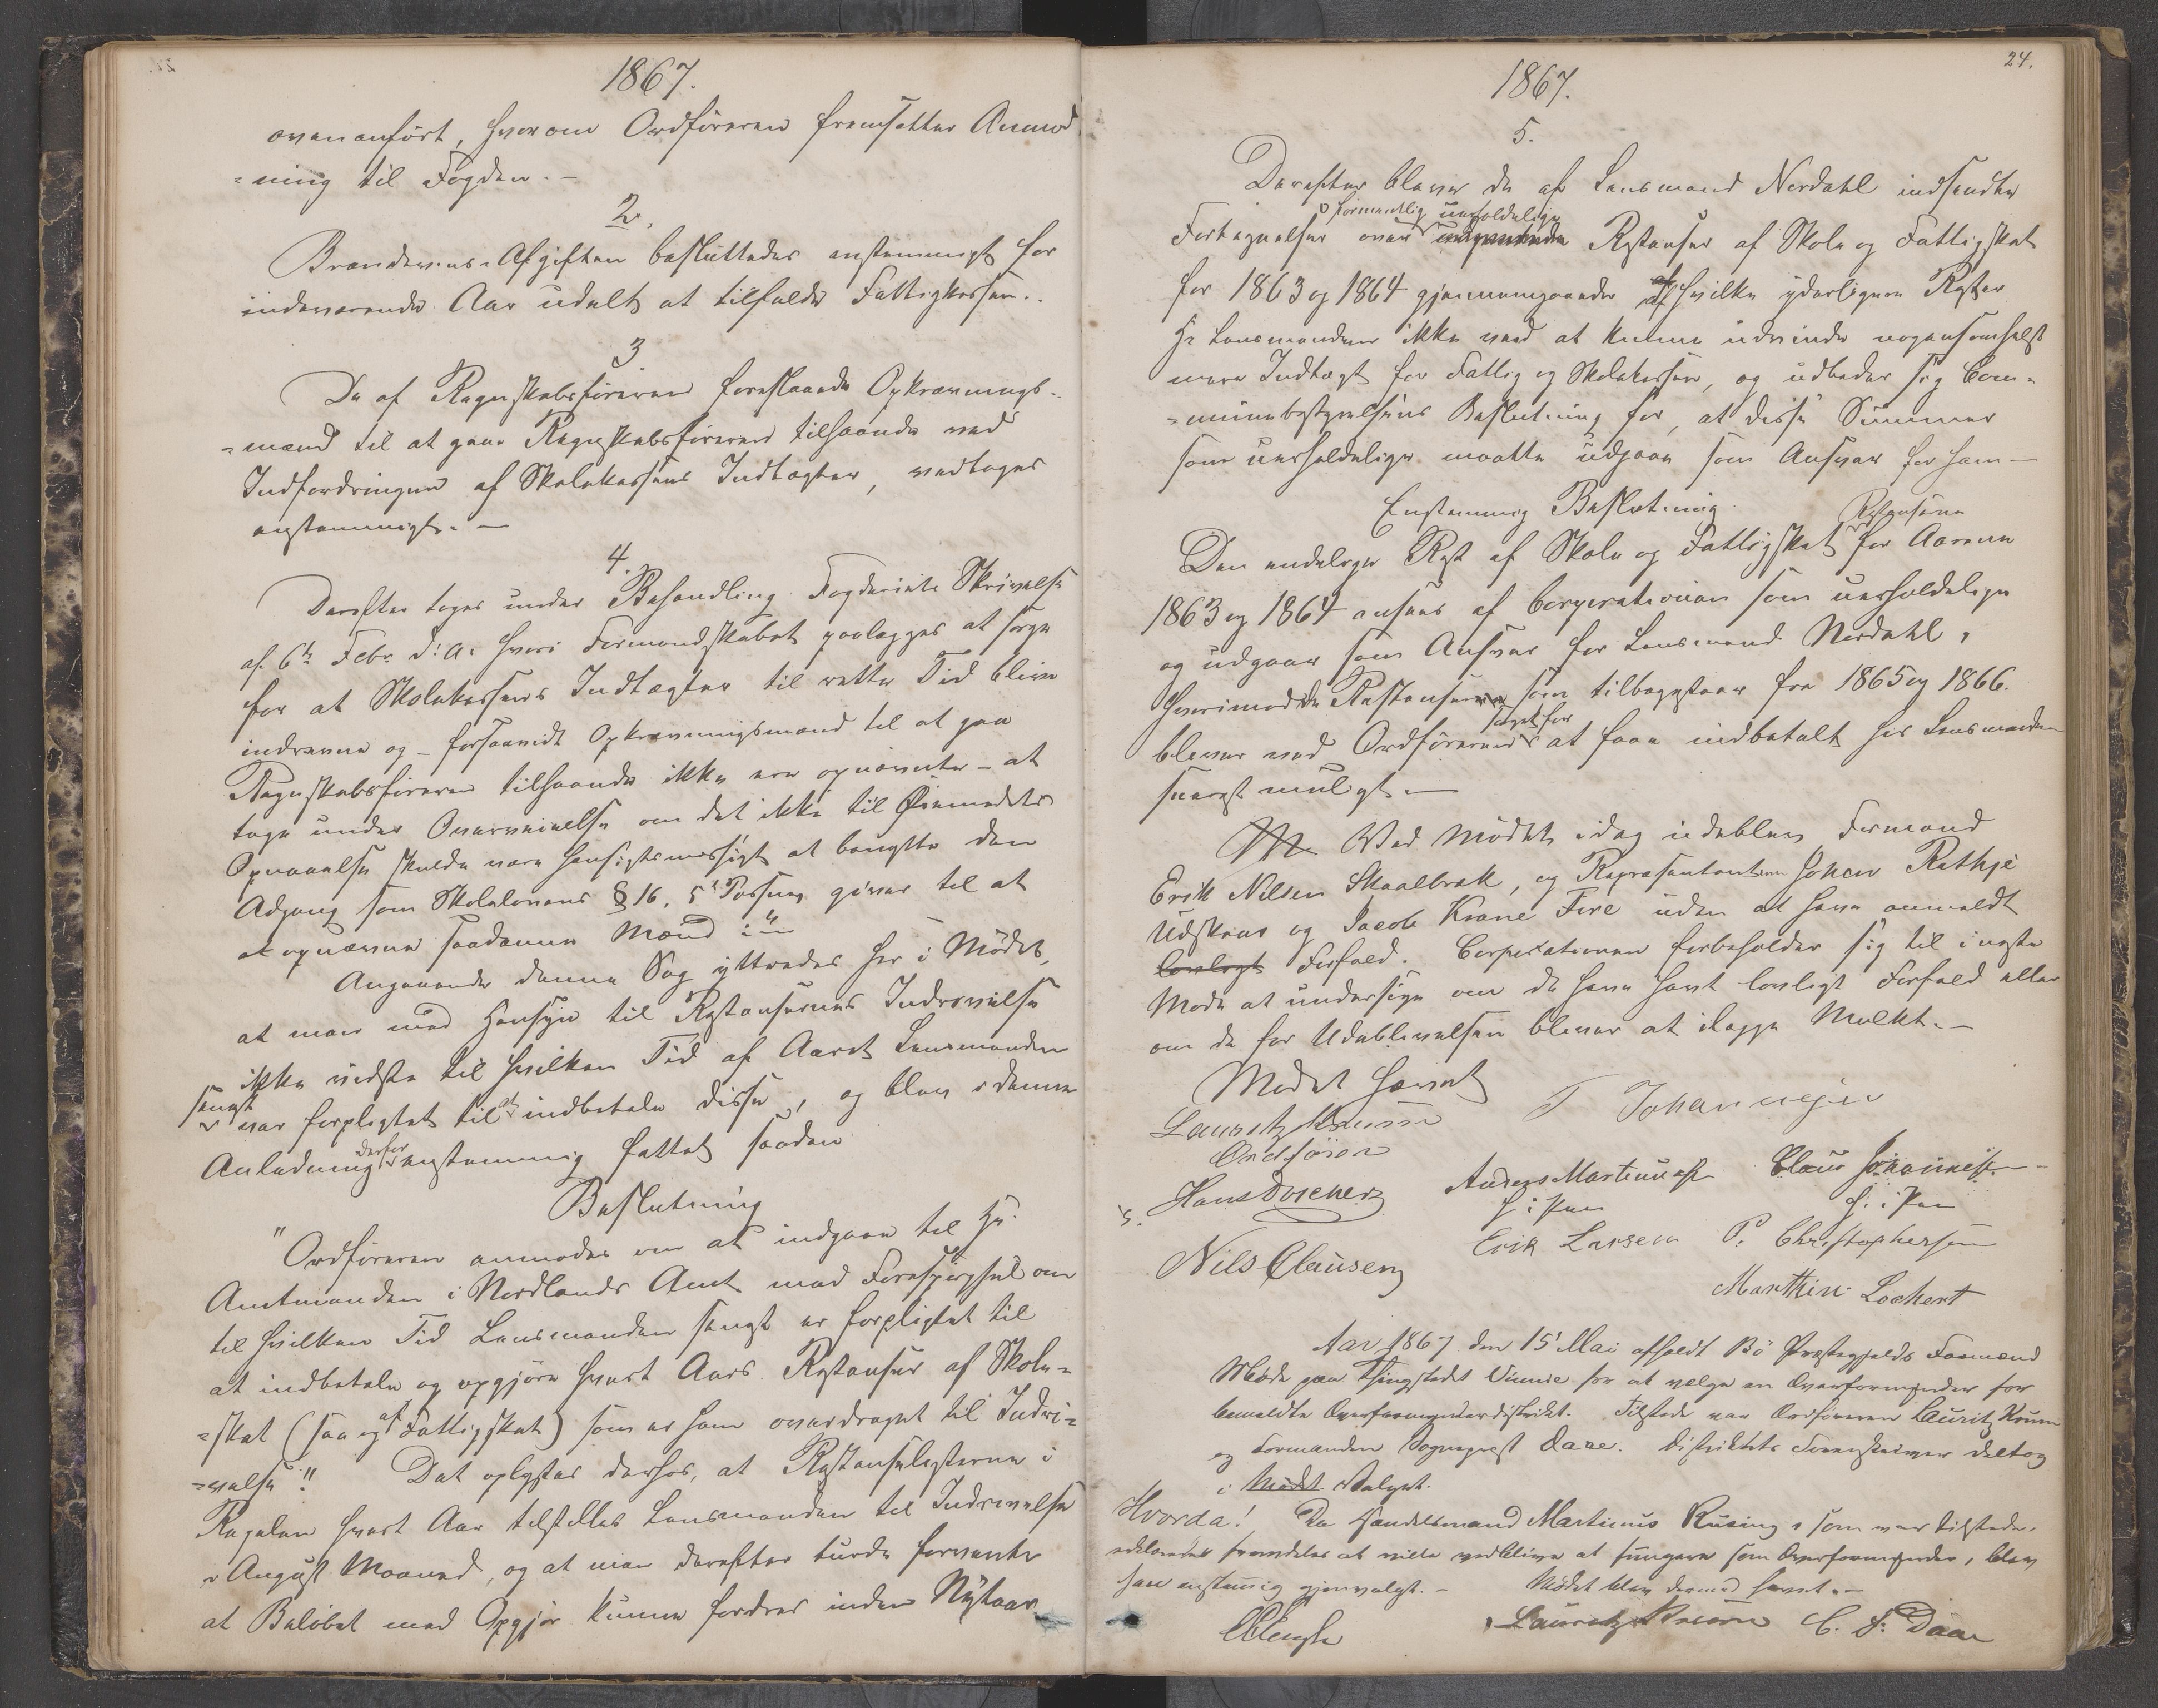 1867.
ovenanført, hvorom Ordføreren fremsetter Anmod
=ning til Fogden. –
2.
Brændevins-Afgiften besluttedes enstemmigt for
indeværende Aar udelt at tilfalde Fattigkassen..
3
De af Regnskabsføreren foreslaaede Opkrævnings-
=mænd til at gaae Regnskabsføreren tilhaande ved
Indfordringen af Skolekassens Indtægter, vedtoges
enstemmigt. –
4.
Derefter toges under Behandling Fogderiets Skrivelse
af 6te Febr. d. A. hvori Formandskabet paalægges at sørge
for at Skolekassens Indtægter til rette Tid blive
inddrevne og – forsaavidt Opkrævningsmænd til at gaa
Regnskabsføreren tilhaande ikke ere opnævnte – at
tage under Overveielse om det ikke til Øiemedets
Opnaaelse skulde være hensigtsmæssigt at benytte den
Adgang som Skolelovens § 16, 5te Passus giver til at
at opnævne saadanne Mænd :"
Angaaende denne Sag yttredes her i Mødet,
at man med Hensyn til Restansernes Inddrivelse
ikke vidste til hvilken Tid af Aaret Lensmanden
senest
var forpligtet til at indbetale disse, og blev i denne
Anledning derfor enstemmig fattet saadan
Beslutning
"Ordføreren anmodes om at indgaae til Hr.
Amtmanden i Nordlands Amt med Forespørgsel om
til hvilken Tid Lensmanden senest er forpligtet til
at indbetale og opgjøre hvert Aars Restanser af Skole=
=skat (saa og af Fattigskat) som er ham overdraget til Inddri=
=velse." Det oplystes derhos, at Restanselisterne i
Regelen hvert Aar tilstilles Lensmanden til Inddrivelse
i August Maaned, og at man derefter turde forvente
at Beløbet med Opgjør kunne fordres inden Nytaar
24.
1867.
5.
Derefter bleve de af Lensmand Nordahl indsendte
formentlig uerholdelige
Fortegnelser over Restanser af Skole og Fattigskat
for 1863 og 1864 gjennemgaaede af hvilke yderligere Rester
Hr Lensmanden ikke veed at kunne inddrive nogensomhelst
mere Indtægt for Fattig og Skolekassen, og udbeder sig Com=
=munebestyrelsens Beslutning for, at disse Summer
som uerholdelige maatte udgaae som Ansvar for ham –
Enstemmig Beslutning
Restanserne
Den endelige Rest af Skole og Fattigskat for Aarene
1863 og 1864 ansees af Corporationen som uerholdelige
og udgaar som Ansvar for Lensmand Nordahl,
hvorimod de Restanser som tilbagestaar fra 1865 og 1866.
sørget for
blever ved Ordføreren at faae indbetalt hos Lensmanden
snarest muligt. –
Ved Mødet idag udeblev Formand
Erik Nilsen Skaalbrek, og Repræsentanterne Johan Rathje
Udskaar og Jacob Krane Fire uden at have anmeldt
lovlegt Forfald. Corporationen forbeholder sig til i næste
Møde at undersøge om de have havt lovligt Forfald eller
om de for Udeblivelsen blever at ilægge Mulkt. –
Mødet hævet
Lauritz Kruun
Ordfører
T Johannesen
Anders Martinusen
Claus Johannesen
Hans Docherz
h: i Pen
h: i Pen
Nils Clausen
Erik Larsen P. Christophersen
Marthin Lochert
Aar 1867 den 15 Mai afholdt Bø Præstegjelds Formænd
Møde paa Thingstedet Vinnie for at vælge en Overformynder for
bemeldte Overformynderdistrikt. Tilstede var Ordføreren Lauritz Kruun
og Formanden Sognepræst Daae. Distriktets Sorenskriver deltog
i Mødet Valget.
Hvorda! Da Handelsmand Martinus Rusing, som var tilstede,
erklærede fremdeles at ville vedblive at fungere som Overformynder, blev
han enstemmig gjenvalgt. – Mødet blev dermed hævet. –
Lauritz Kruun C. F. Daae